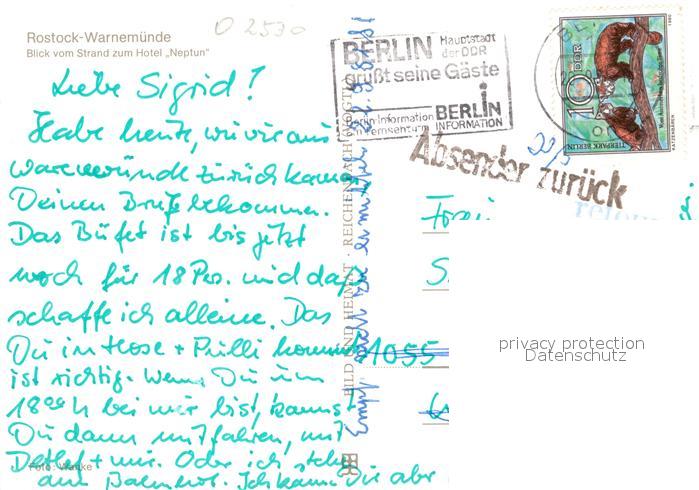 Rostock-Warnemünde
Blick vom Strand zum Hotel „Neptun"
O 2530
BERLIN Hauptstadt
der DDR
grüßt seine Gäste
Berlin-Information
im Fernsehturm
BERLIN
INFORMATION
10
DDR
TIERPARK BERLIN
KATZENBÄREN
1980
Absender zurück
retour
Liebe Sigrid!
Habe heute, wie wir aus
Warnemünde zurück kamen
Deinen Brief bekommen.
Das Büfet ist bis jetzt
noch für 18 Pers. und das
schaffe ich alleine. Das
Du in Hose + Pulli kommst
ist richtig. Wenn Du um
18 00 h bei mir bist, kannst
Du dann mitfahren, mit
Detlef + mir. Oder ich
am Bahnhof. Ich kann Die aber
Foto: Wanke
BILD UND HEIMAT · REICHENBACH (VOGTL)
Frau
S
1055
privacy protection
Datenschutz